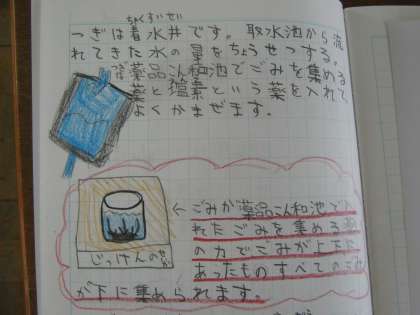 ちゃくすいせい
つぎは着水井です。取水池から流
れてきた水の量をちょうせつする。
薬品こん和池でごみを集める
薬と塩素という薬を入れて
よくかまぜます。
←ごみが薬品こん和池で入
れたごみを集める薬
の力でごみが上下に
あったものすべてのごみ
が下に集められます。
じっけんの